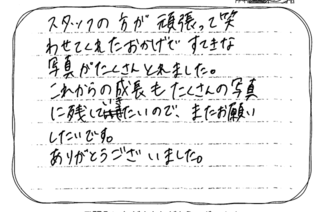 スタッフの方が 頑張って笑
わせてくれたおかげで すてきな
写真がたくさんとれました。
これからの成長もたくさんの写真
に残していきたいので、またお願い
したいです。
ありがとうございました。